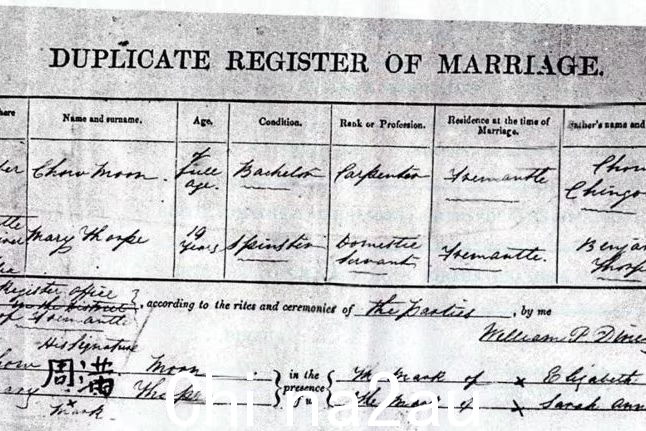 DUPLICATE REGISTER OF MARRIAGE.
Name and surname. Age. Condition. Rank or Profession. Residence at the time of Marriage. Father's name and
Chow Moon. of Full age. Bachelor Carpenter Fremantle Chow Chingo
Mary Thorpe 19 Years Spinster Domestic Servant Fremantle. Benja Thorp
Register office
in the District
of Fremantle
, according to the rites and ceremonies of the Parties, by me
William P. Dim
His Signature
how 周 Moon in the The Mark of x Elizabeth
ary Thorpe presence of us the Mark of x Sarah Ann
x
Mark
China2au